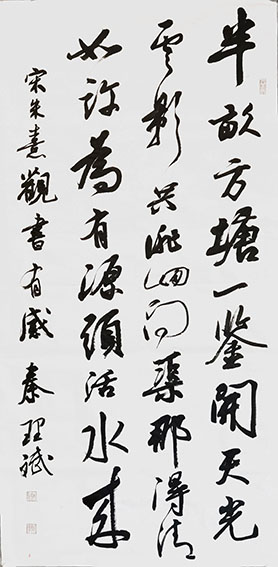 半畝方塘一鑒開天光
雲影共徘徊問渠那得清
如許為有源頭活水來
宋朱熹觀書有感 秦理斌